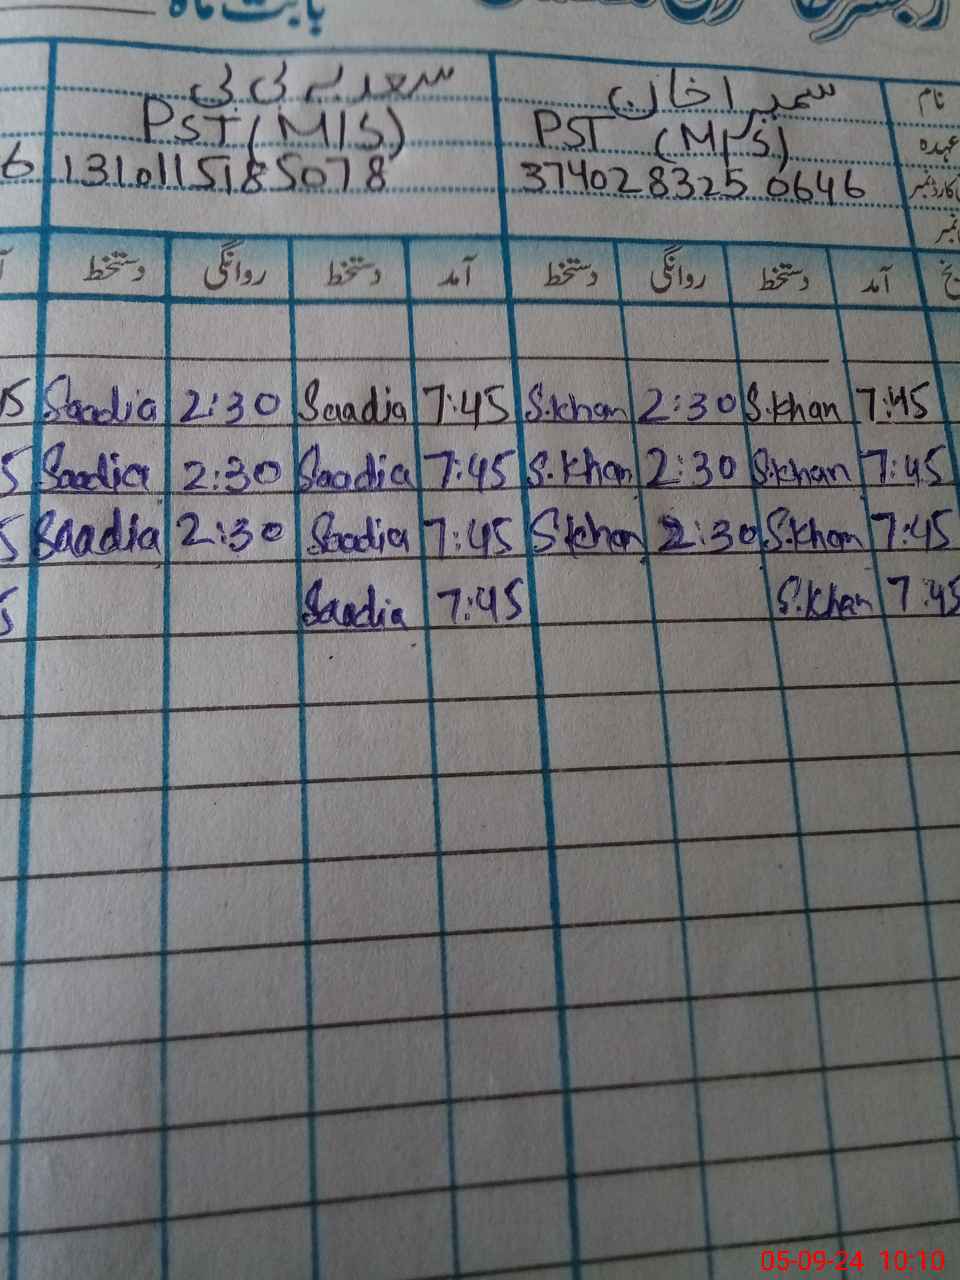 بابت ماہ
نام سمیرا خان سعدیہ بی بی
عہدہ PST (M/S) PST (M/S)
3740283250646 1310115185078 6
نمبر
آمد دستخط روانگی دستخط آمد دستخط روانگی دستخط
7:45 S.khan 2:30 S.khan 7:45 Saadia 2:30 Saadia
7:45 S.khan 2:30 S.khan 7:45 Saadia 2:30 Saadia 5
7:45 S.khan 2:30 S.khan 7:45 Saadia 2:30 Saadia 5
7:45 S.khan 7:45 Saadia 5
05-09-24 10:10